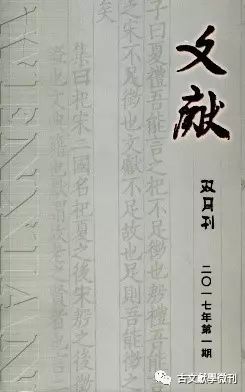 文獻
双月刊
二〇一七年第一期
WENXIAN
子曰夏禮吾能言之杞不足徵也殷禮吾能
之宋不足徵也文獻不足故也足則吾能
矣
杞宋二國名杞夏之後宋殷之後
古文献學微刊